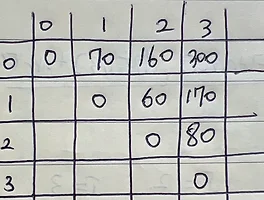 0 1 2 3
0 0 70 160 300
1 0 60 170
2 0 80
3 0